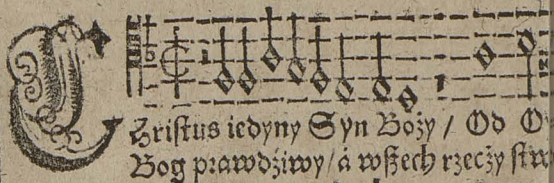 Christus iedyny Syn Boży / Od
Bog prawdźiwy / á wszech rzeczy